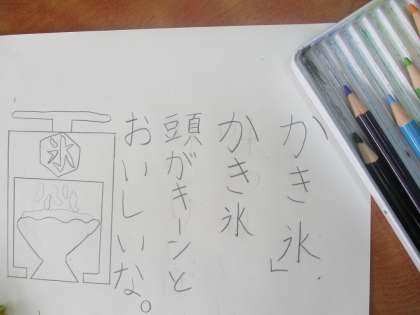 かき氷」
かき氷
頭がキーンと
おいしいな。
氷